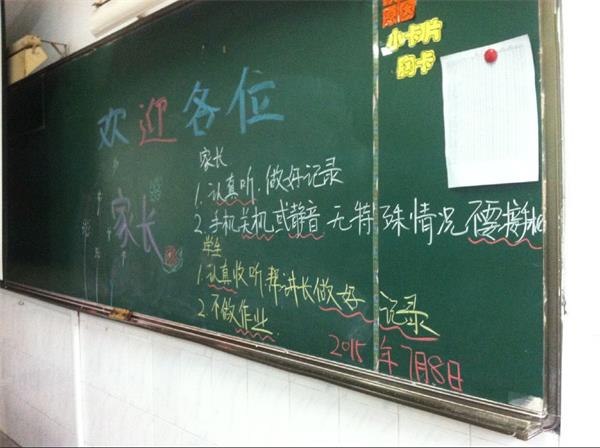 小卡片
胸卡
欢迎各位
家长
家长
1.认真听.做好记录
2.手机关机或静音 无特殊情况不需接
学生
1.认真收听.帮长做好 记录
2.不做作业.
2015年7月8日